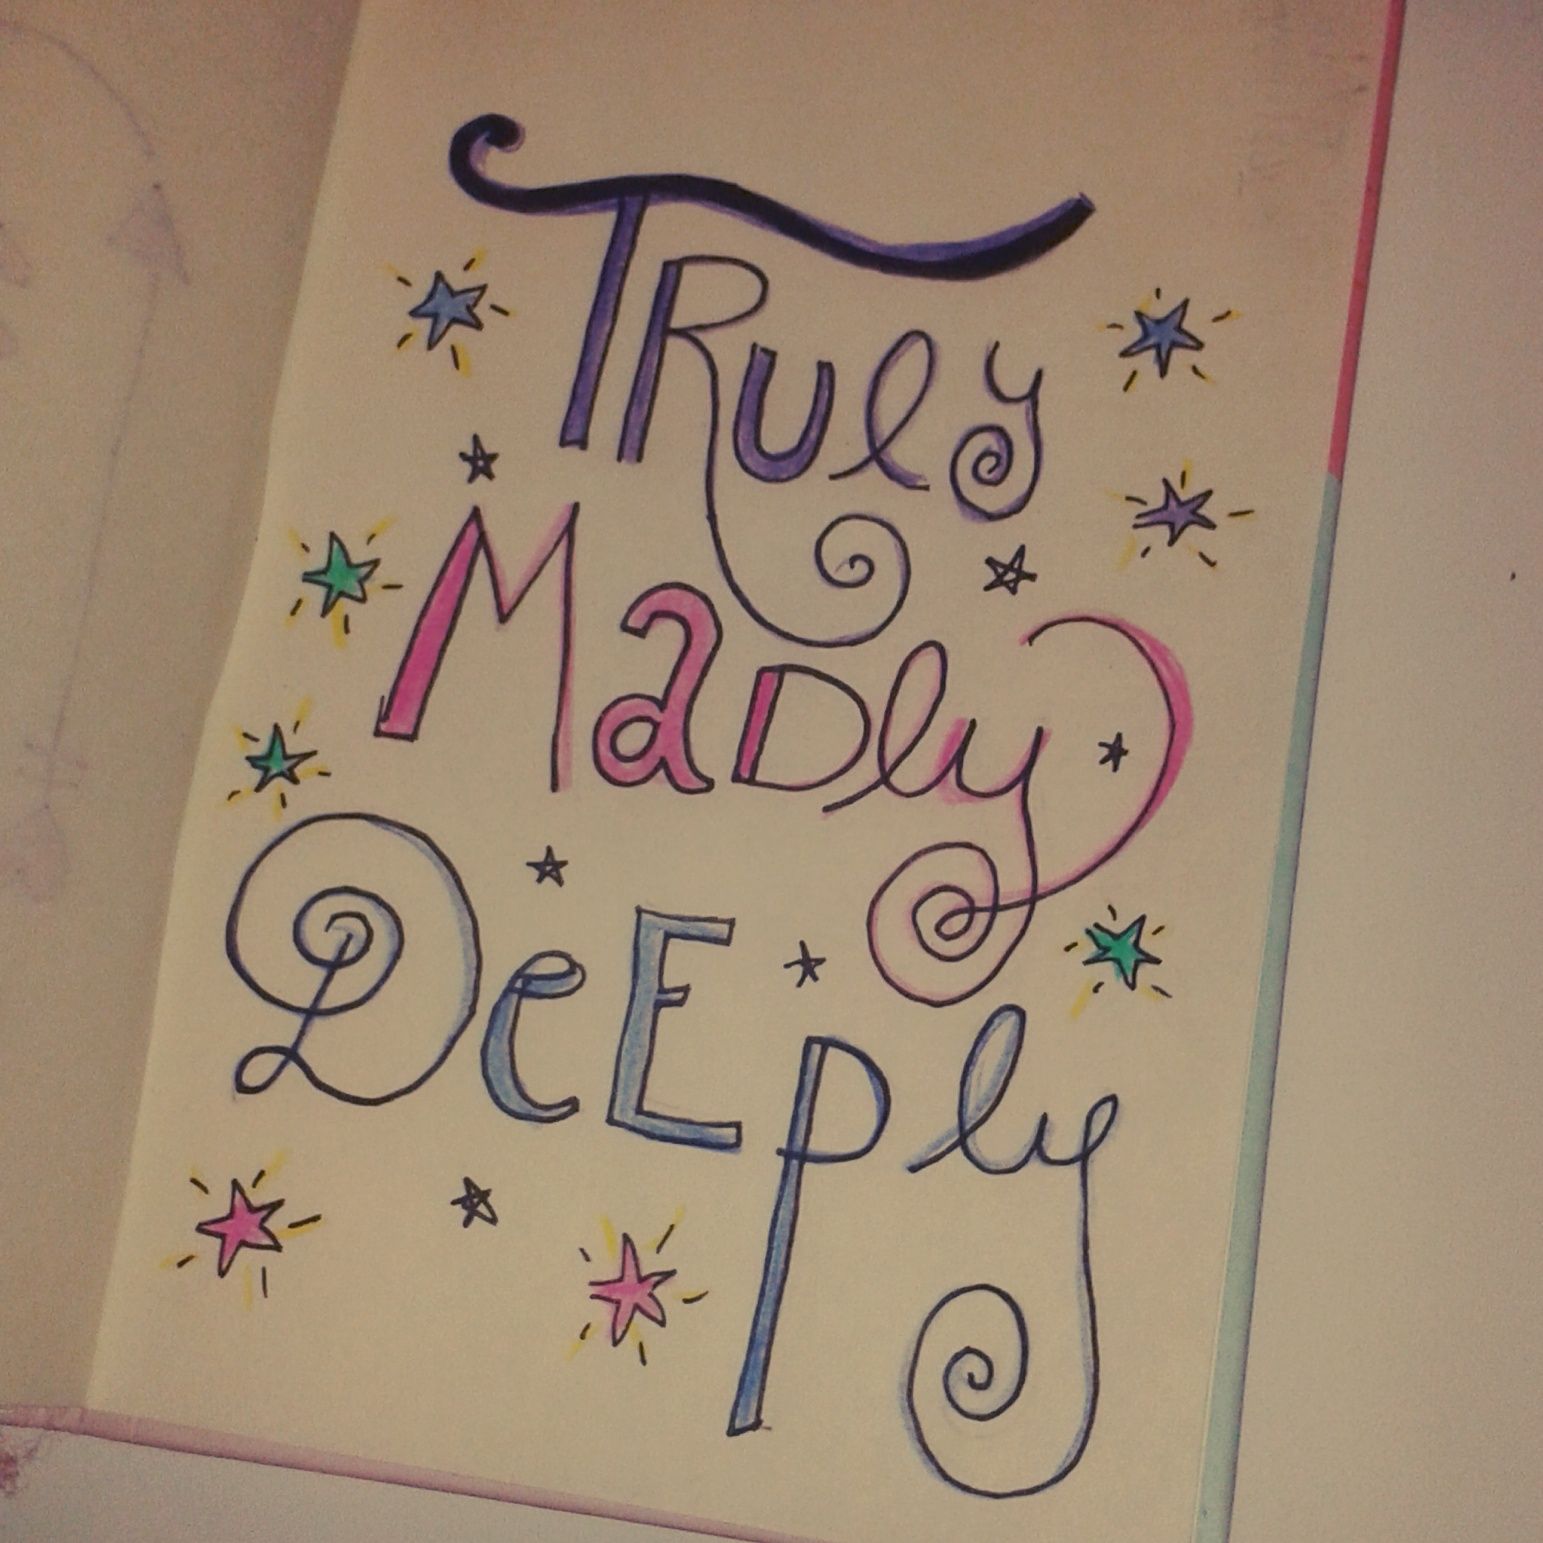 TRuly
MaDly
DeEply